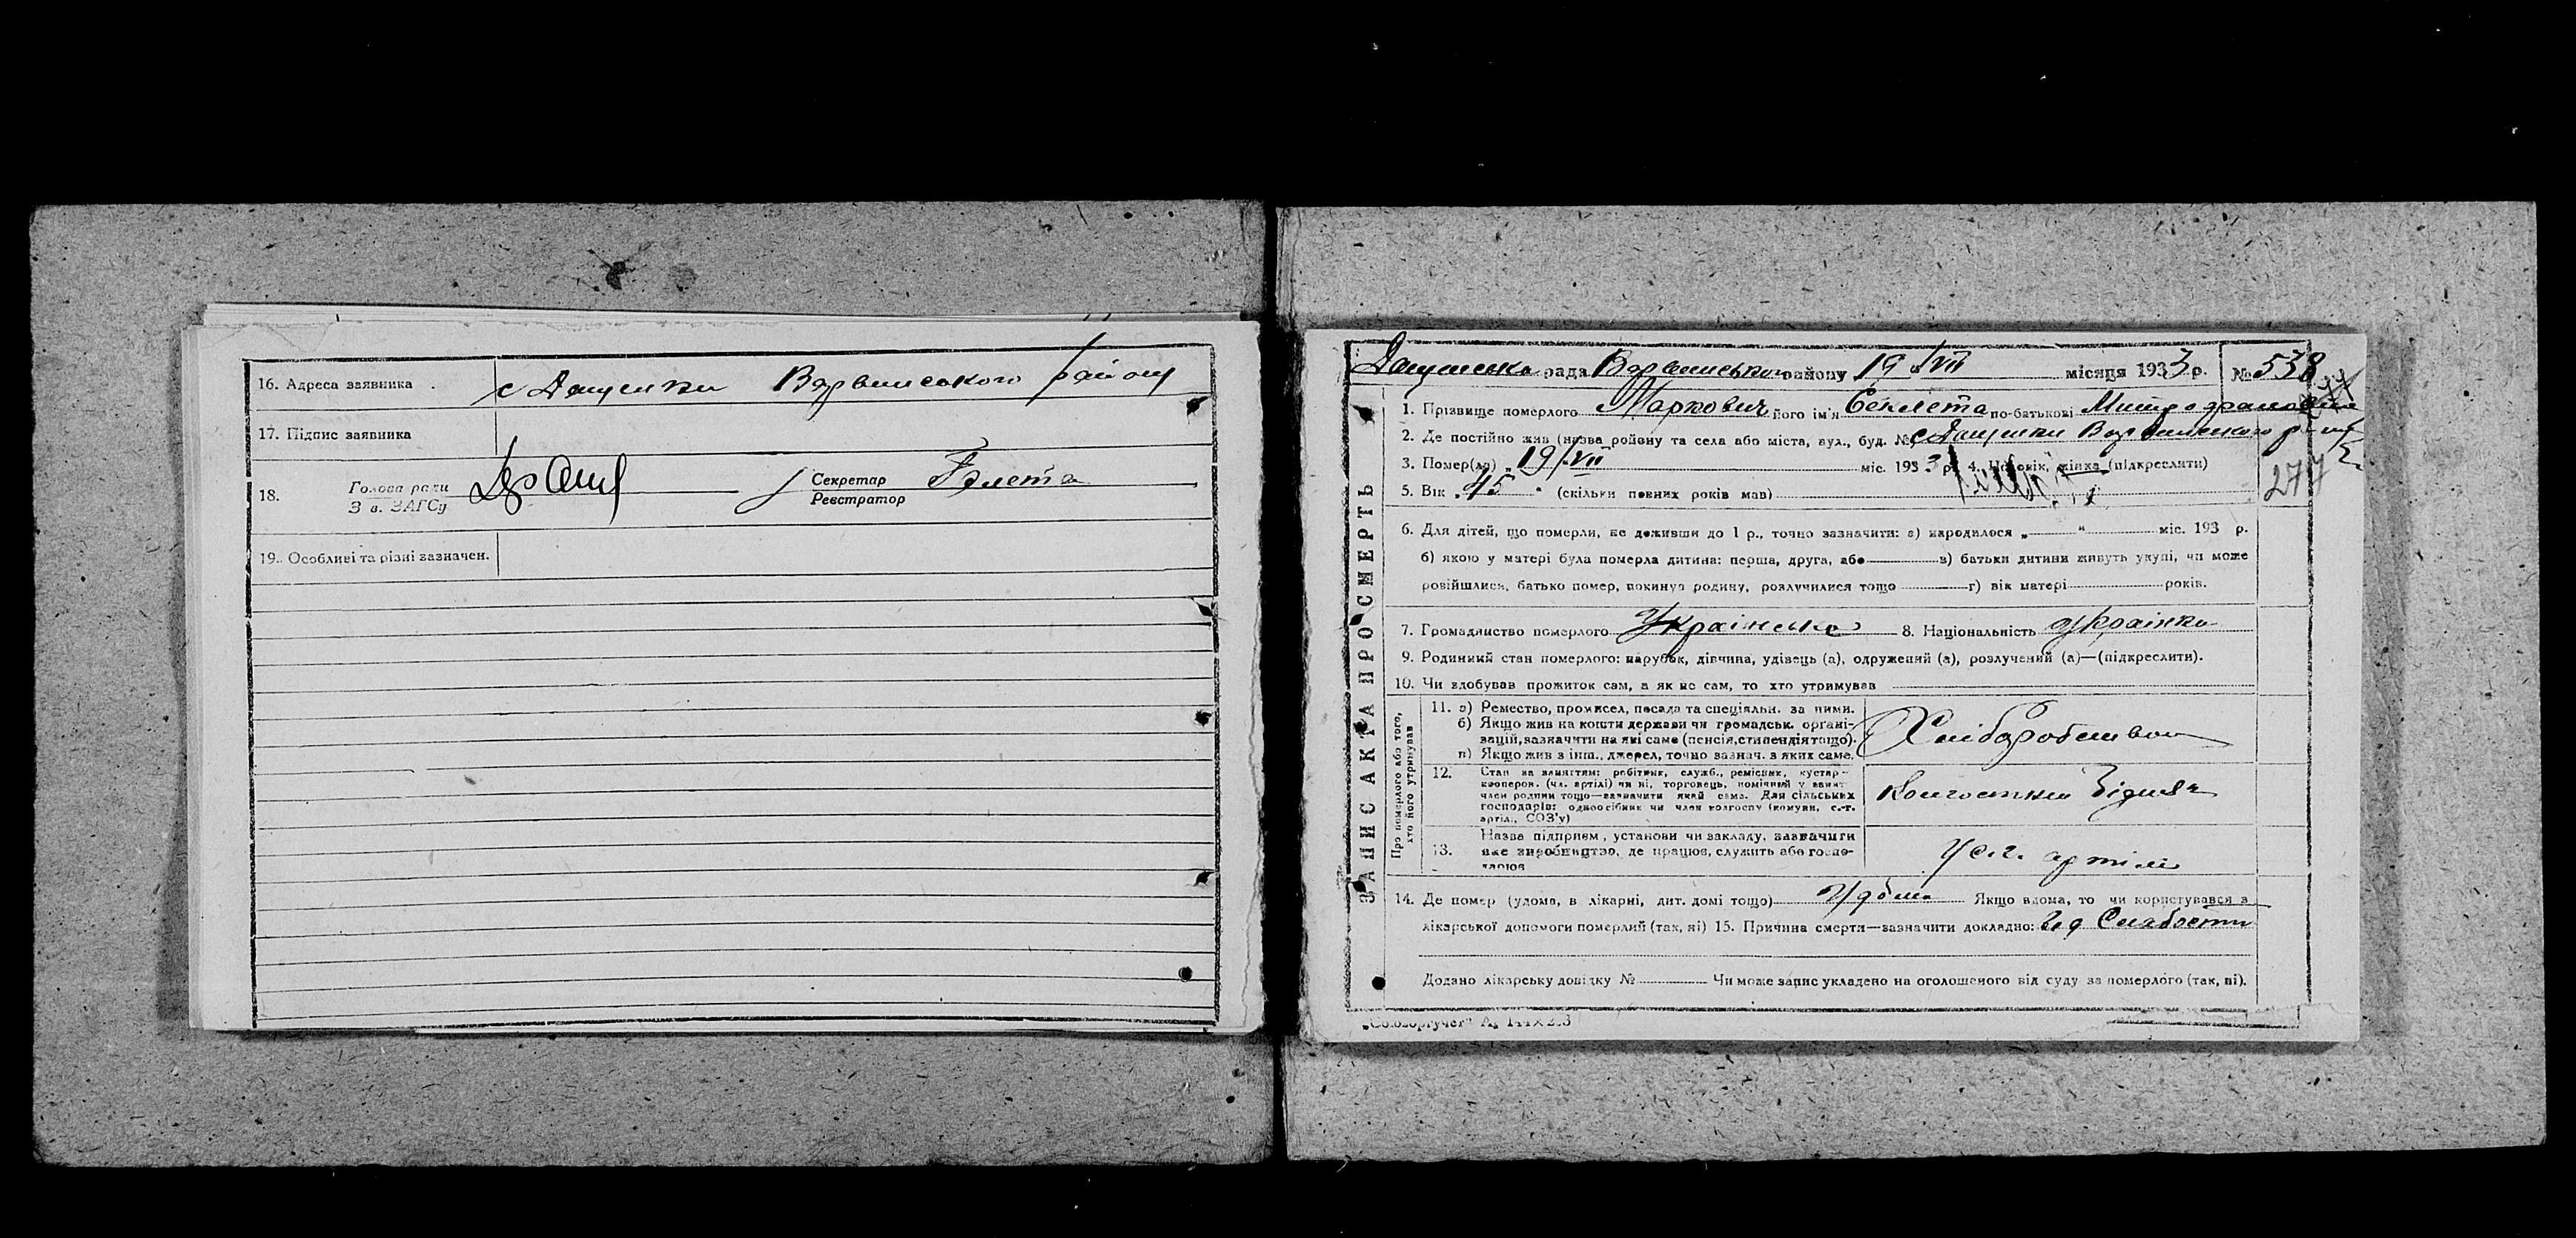 16. Адреса заявника с Дащенки Варвинського району
17. Підпис заявника
18. Голова ради Секретар Галета
З в. ЗАГСу Реєстратор
19. Особливі та різні зазначен.
ЗАПИС АКТА ПРО СМЕРТЬ
Дащенська рада Варвинського району 19/VII місяця 1933 р. № 538
1. Прізвище померлого Маркович його ім'я Секлета по-батькові Митрофановна
2. Де постійно жив (назва району та села або міста, вул., буд. № с Дащенки Варвинського
3. Помер(ла) „19/VII міс. 1933 р. 4. Чоловік, жінка (підкреслити)
5. Вік „45" (скільки повних років мав)
277
6. Для дітей, що померли, не доживши до 1 р., точно зазначити: а) народилося „ " міс. 193 р.
б) якою у матері була померла дитина: перша, друга, або в) батьки дитини живуть укупі, чи може
розійшлися, батько помер, покинув родину, розлучилися тощо г) вік матері років.
7. Громадянство померлого Українське 8. Національність українка
9. Родинний стан померлого: парубок, дівчина, удівець (а), одружений (а), розлучений (а)—(підкреслити).
10. Чи здобував прожиток сам, а як не сам, то хто утримував
Про померлого або того, хто його утримував
11. а) Ремество, промисел, посада та спеціяльн. за ними.
б) Якщо жив на кошти держави чи громадськ. органі-
зацій, зазначити на які саме (пенсія, стипендія тощо).
в) Якщо жив з інш. джерел, точно зазнач. з яких саме.
Хліборобством
12. Стан за заняттям: робітник, служб., ремісник, кустар-
кооперов. (чл. артілі) чи ні, торговець, помічний у занят.
член родини тощо—зазначити який саме. Для сільських
господарів: одноосібник чи член колгоспу (комуни, с.-г.
артілі, СОЗ'у)
Колгоспник бідняк
13. Назва підприєм., установи чи закладу, зазначити
яке виробництво, де працює, служить або госпо-
дарює
У с.г. артілі
14. Де помер (удома, в лікарні, дит. домі тощо) Удома Якщо вдома, то чи користувався з
лікарської допомоги померлий (так, ні) 15. Причина смерти—зазначити докладно: Від Слабости
Додано лікарську довідку № Чи може запис укладено на оголошеного від суду за померлого (так, ні).